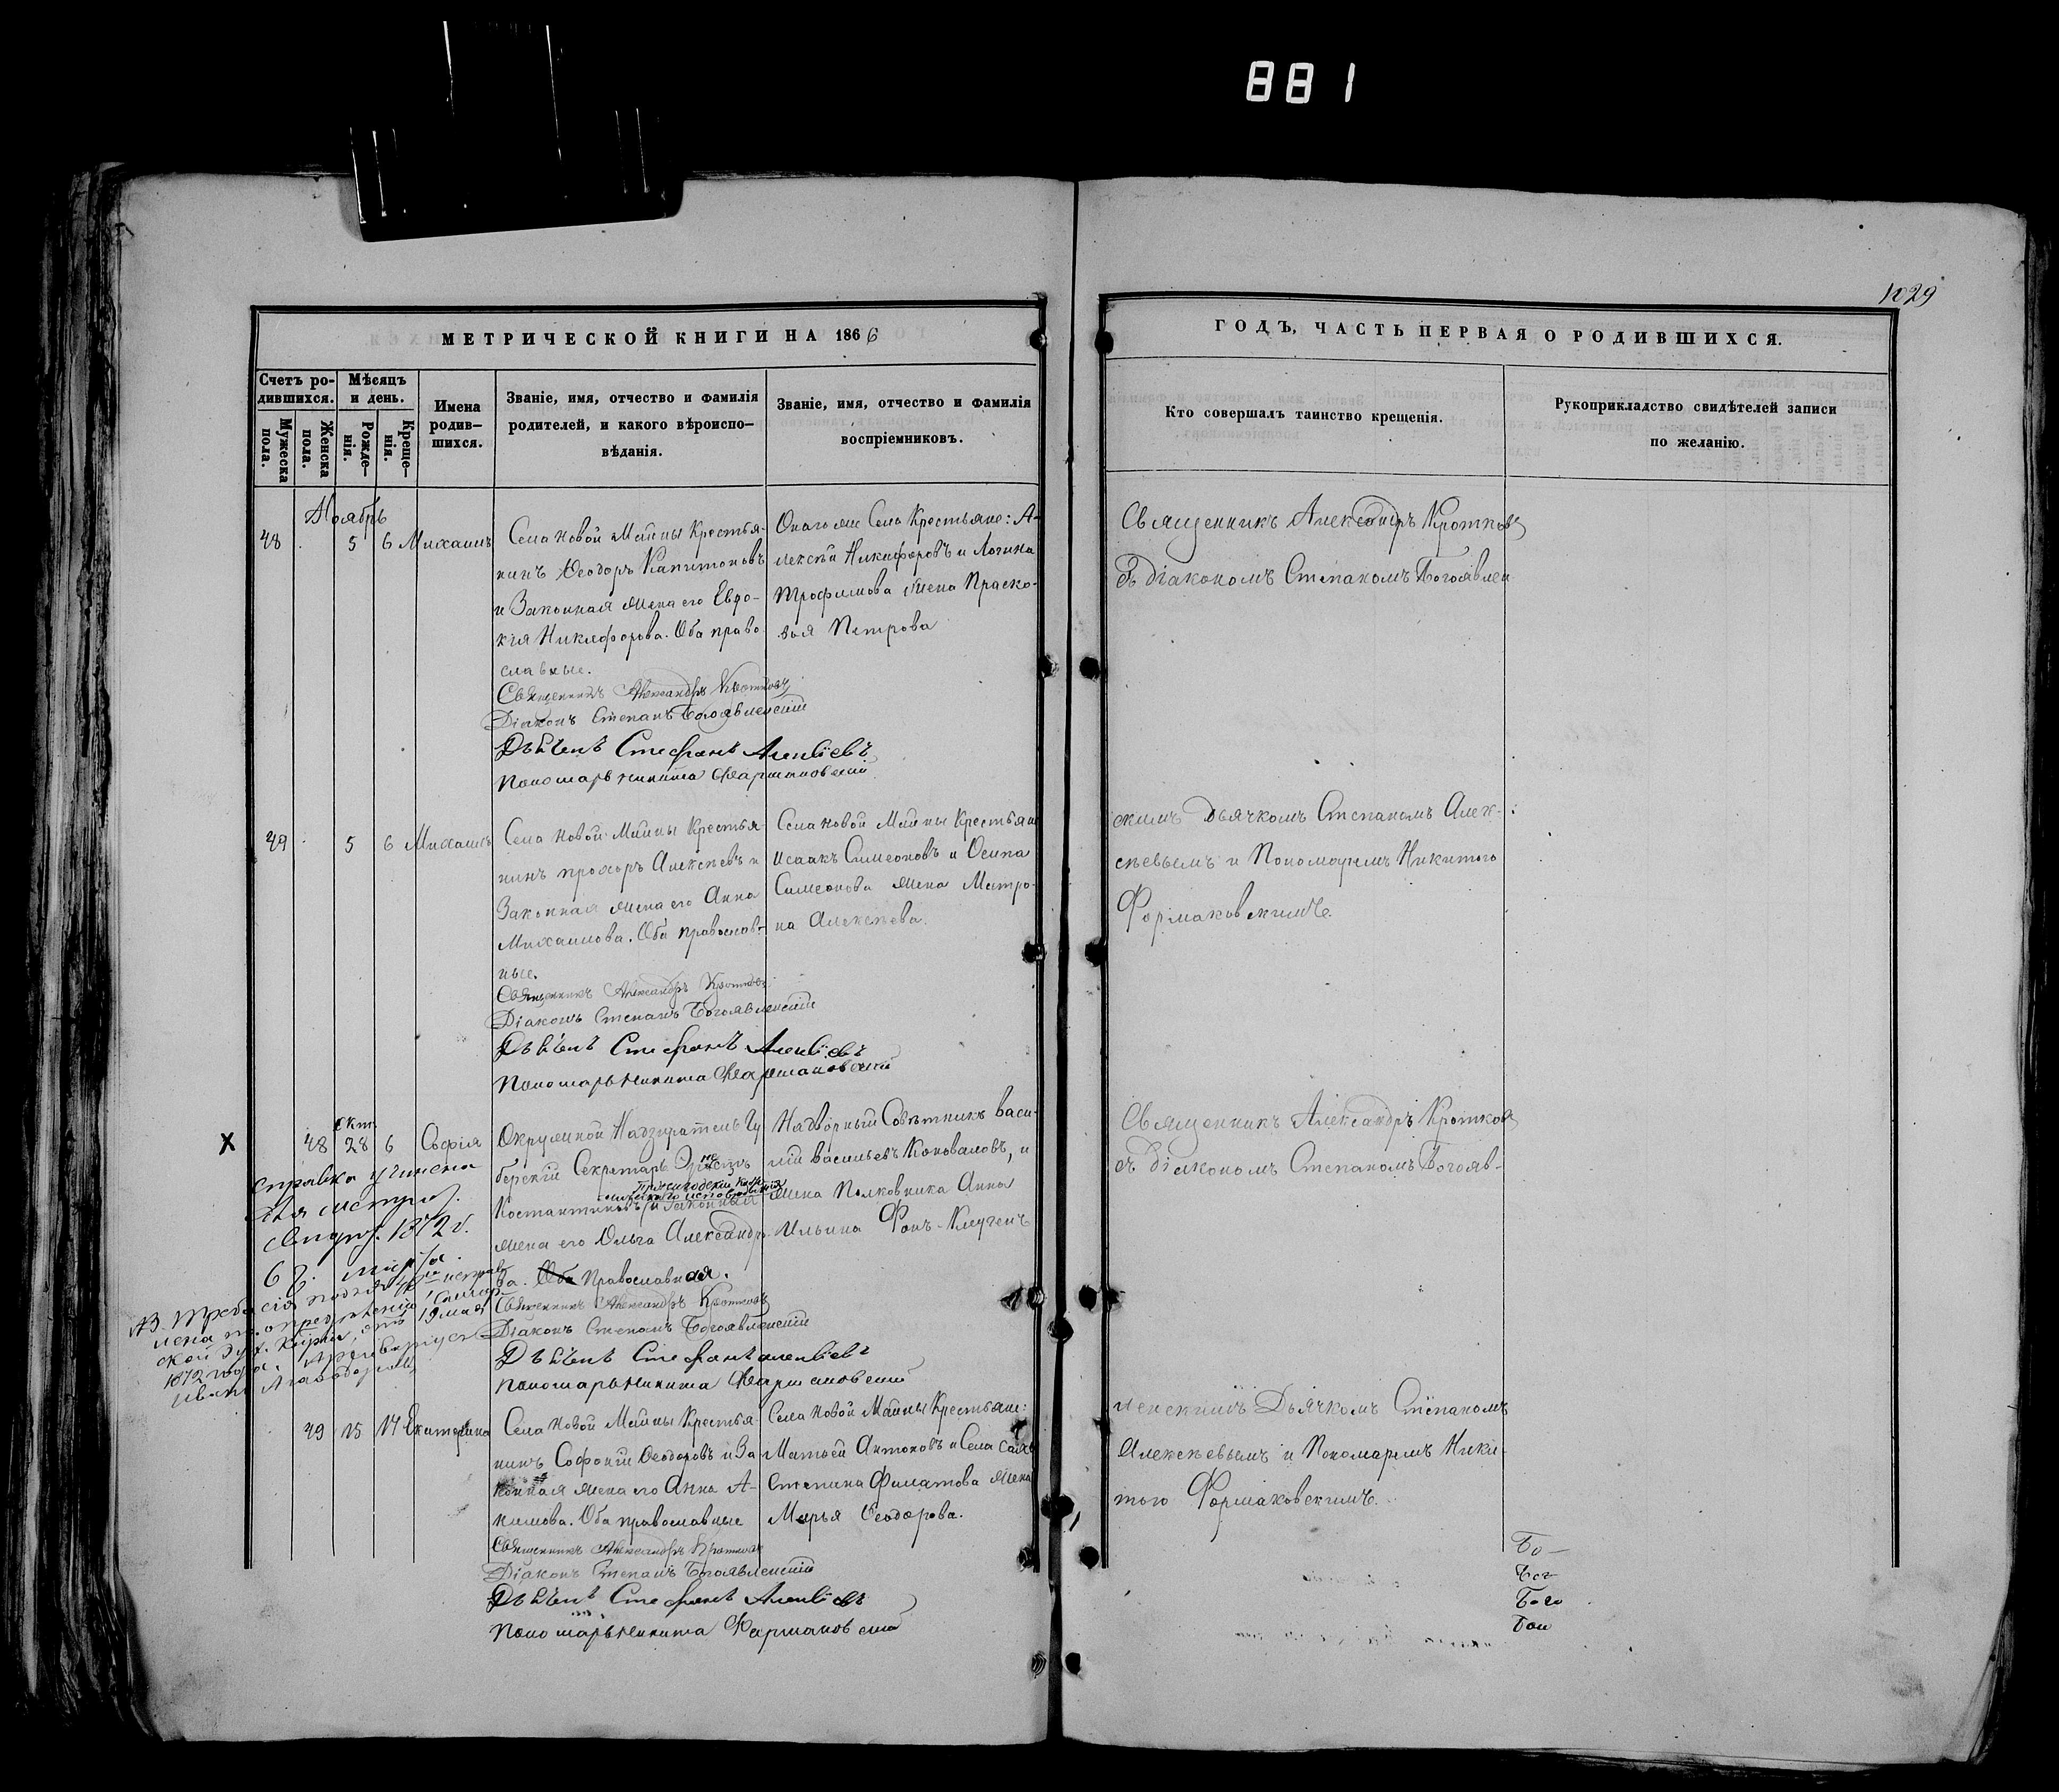 881
1029
МЕТРИЧЕСКОЙ КНИГИ НА 1866
ГОДЪ, ЧАСТЬ ПЕРВАЯ О РОДИВШИХСЯ.
Счетъ ро-
дившихся.
Мужеска
пола.
Женска
пола.
Мѣсяцъ
и день.
Рожде-
нія.
Креще-
нія.
Имена
родив-
шихся.
Званіе, имя, отчество и фамилія
родителей, и какого вѣроиспо-
вѣданія.
Званіе, имя, отчество и фамилія
воспріемниковъ.
Кто совершалъ таинство крещенія.
Рукоприкладство свидѣтелей записи
по желанію.
Ноябрь
48 5 6 Михаилъ
Села Новой Майны Крестья-
нинъ Ѳеодоръ Капитоновъ
и Законная жена его Евдо-
кія Никифорова. Оба право-
славные.
Священникъ Александръ Кротковъ
Діаконъ Степанъ Богоявленскій
Дьячекъ Стефанъ Алексіевъ
Пономарь Никита Фармаковскій
Онагоже Села Крестьяне: А-
лексѣй Никифоровъ и Логина
Трофимова жена Праско-
вья Петрова
Священникъ Александръ Кротковъ
съ діакономъ Степаномъ Богоявлен
49 5 6 Михаилъ
Села Новой Майны Крестья-
нинъ Прохоръ Алексѣевъ и
Законная жена его Анна
Михаилова. Оба православ-
ные.
Священникъ Александръ Кротковъ
Діаконъ Степанъ Богоявленскій
Дьячекъ Стефанъ Алексіевъ
Пономарь Никита Фармаковскій
Села Новой Майны Крестьяне
Исаакъ Симеоновъ и Осипа
Симеонова жена Матро-
на Алексѣева.
скимъ Дьячкомъ Степаномъ Алек-
сѣевымъ и Пономаремъ Никитого
Формаковскимъ.
х
окт.
48 28 6 Софія
Окружной Надзиратель Гу
берскій Секретарь Эрнстъ
Костантиновъ и Законная
жена его Ольга Александро-
ва. Оба Православная.
Священникъ Александръ Кротковъ
Діаконъ Степанъ Богоявленскій
Дьячекъ Стефанъ Алексіевъ
Пономарь Никита Фармаковскій
Надворный Совѣтникъ Васи-
лій Васильевъ Коноваловъ, и
жена Полковника Анна
Ильина Фонъ-Клугенъ
Священникъ Александръ Кротковъ
съ діакономъ Степаномъ Богояв-
справка учинена
для метрич.
1872 г.
1872 года.
49 15 17 Екатерина
Села Новой Майны Крестья
нинъ Софоній Ѳеодоровъ и За
конная жена его Анна А-
кимова. Оба православные
Священникъ Александръ Кротковъ
Діаконъ Степанъ Богоявленскій
Дьячекъ Стефанъ Алексіевъ
Пономарь Никита Фармаковскій
Села Новой Майны Крестьяне:
Матѳей Антоновъ и Села
Степина Филатова жена
Марья Ѳеодорова.
ленскимъ Дьячкомъ Степаномъ
Алексѣевымъ и Пономаремъ Ники-
того Формаковскимъ.
Бо-
Бог
Бого